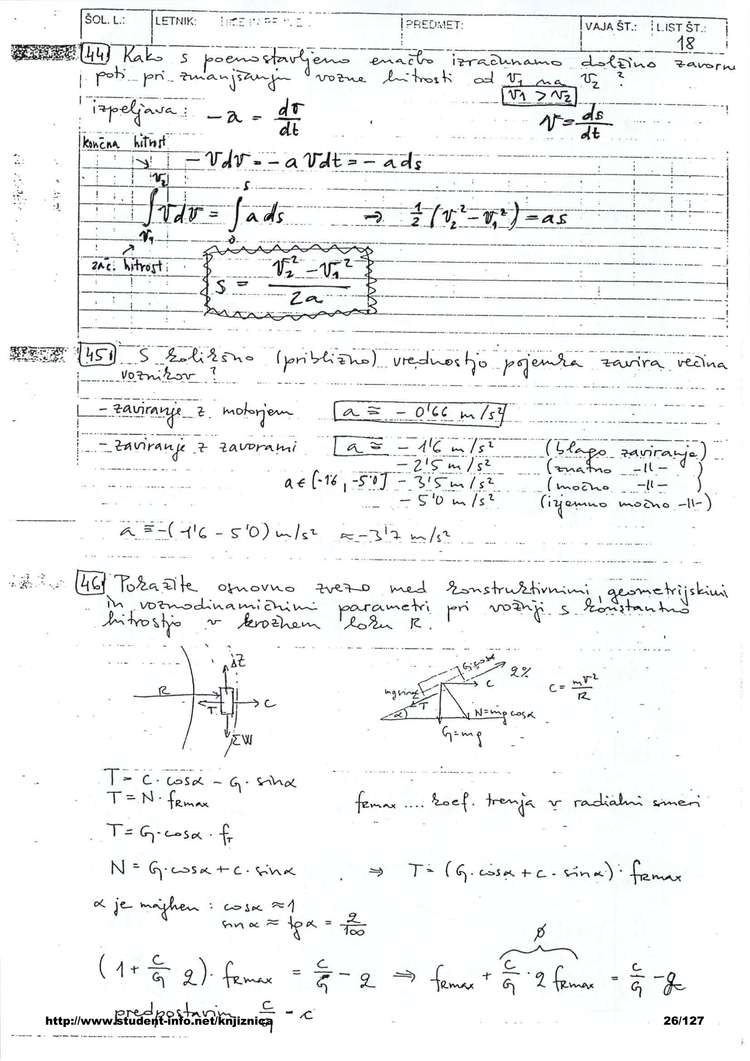 ŠOL. L.: LETNIK: PREDMET: VAJA ŠT.: LIST ŠT.:
18
44. Kako s poenostavljeno enačbo izračunamo dolžino zavorne
poti pri zmanjšanju vozne hitrosti od v₁ na v₂ ?
v₁ > v₂
izpeljava: -a = dv/dt v = ds/dt
končna hitrost
-v dv = -a v dt = -a ds
∫ v dv = ∫ a ds ⇒ 1/2 (v₂² - v₁²) = as
zač. hitrost
s = (v₂² - v₁²)/2a
45. S kolikšno (približno) vrednostjo pojemka zavira večina
voznikov ?
- zaviranje z motorjem a ≅ - 0'66 m/s²
- zaviranje z zavorami a ≅ - 1'6 m/s² (blago zaviranje)
- 2'5 m/s² (znatno -11- )
a ∈ [-1'6, -5'0] - 3'5 m/s² (močno -11- )
- 5'0 m/s² (izjemno močno -11-)
a ≅ -(-1'6 - 5'0) m/s² ≈ -3'7 m/s²
46. Pokažite osnovno zvezo med konstruktivnimi, geometrijskimi
in voznodinamičnimi parametri pri vožnji s konstantno
hitrostjo v krožnem loku R.
ΔZ
R T C
ΣW
G cosα 2%
mg sinα T C
α N=mg cosα
G=mg
C = mv²/R
T = C · cosα - G · sinα
T = N · fRmax fRmax .... koef. trenja v radialni smeri
T = G · cosα · fT
N = G · cosα + C · sinα ⇒ T = (G · cosα + C · sinα) · fRmax
α je majhen : cosα ≈ 1
sinα ≈ tgα = q/100
(1 + C/G q) · fRmax = C/G - q ⇒ fRmax + C/G · q fRmax = C/G - q
predpostavim C/G
http://www.student-info.net/knjiznica 26/127